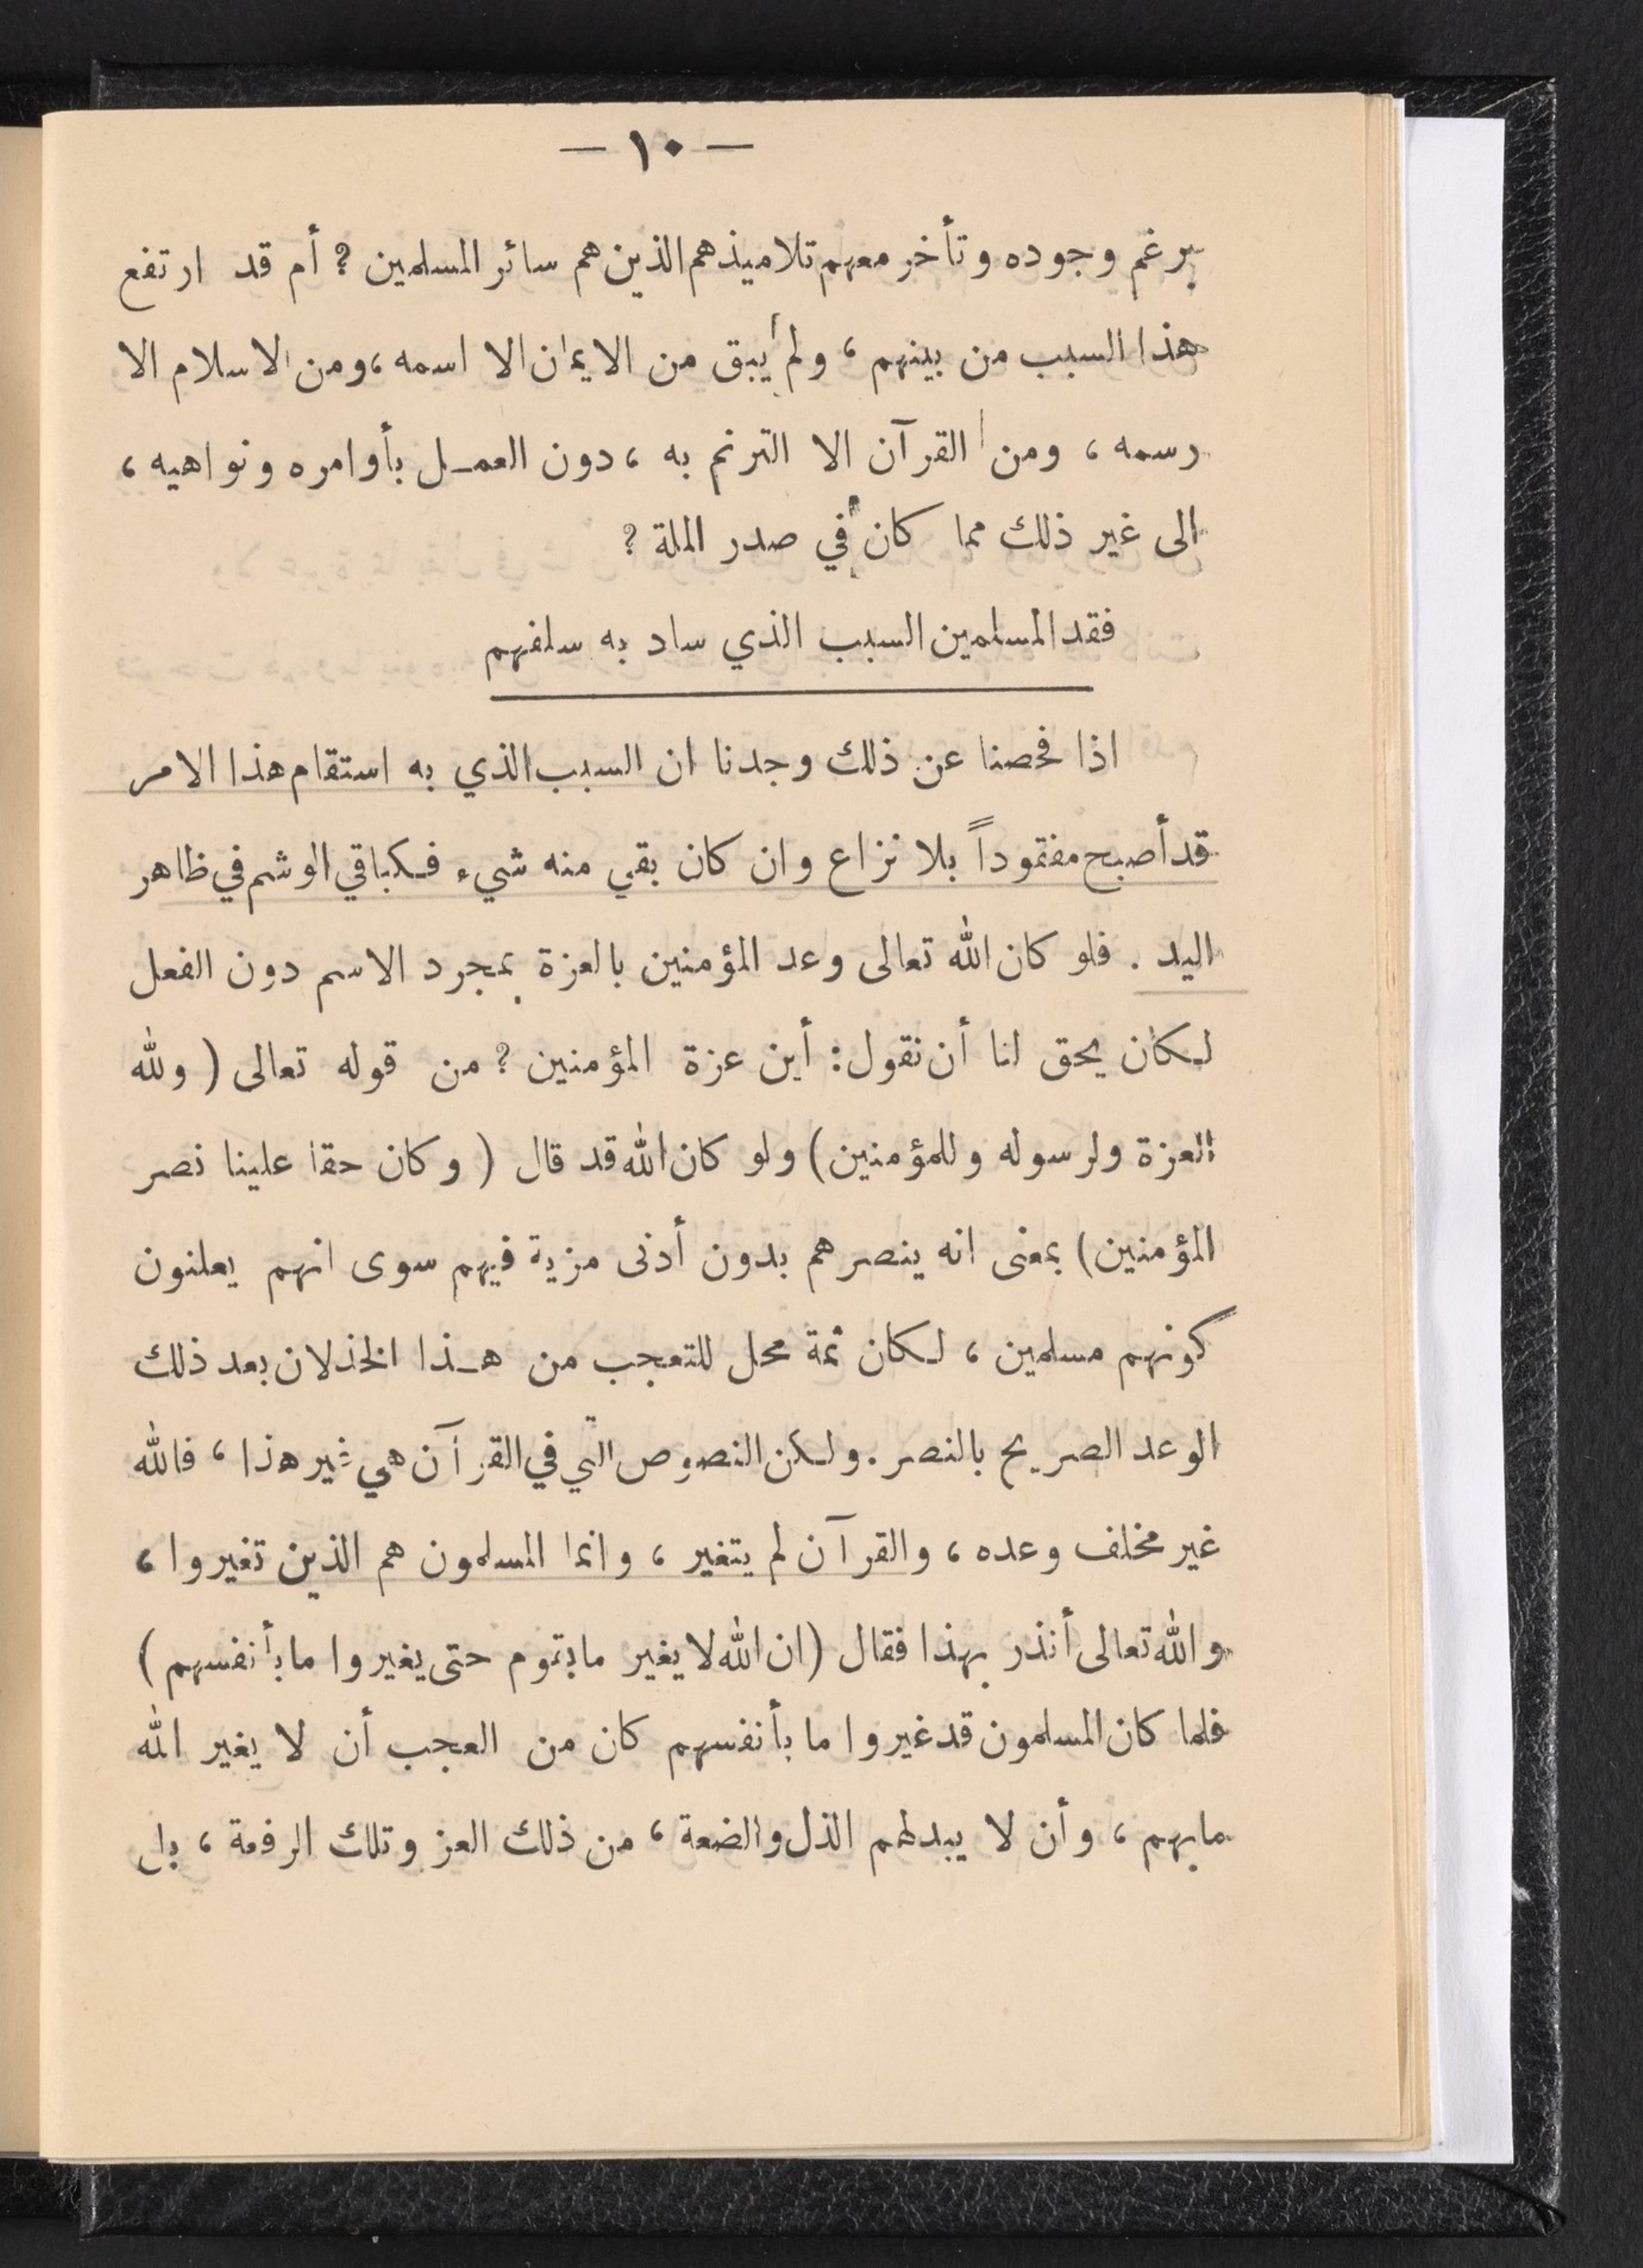 — ١٠ —
برغم وجوده وتأخر معهم تلاميذهم الذين هم سائر المسلمين ؟ أم قد ارتفع
هذا السبب من بينهم ، ولم يبق من الايمان الا اسمه ، ومن الاسلام الا
رسمه ، ومن القرآن الا الترنم به ، دون العمـل بأوامره ونواهيه ،
الى غير ذلك مما كان في صدر الملة ؟
فقد المسلمين السبب الذي ساد به سلفهم
اذا فحصنا عن ذلك وجدنا ان السبب الذي به استقام هذا الامر
قد أصبح مفقوداً بلا نزاع وان كان بقي منه شيء فـكباقي الوشم في ظاهر
اليد . فلو كان الله تعالى وعد المؤمنين بالعزة بمجرد الاسم دون الفعل
لـكان يحق لنا أن نقول : أين عزة المؤمنين ؟ من قوله تعالى ( ولله
العزة ولرسوله وللمؤمنين ) ولو كان الله قد قال ( وكان حقا علينا نصر
المؤمنين ) بمعنى انه ينصرهم بدون أدنى مزية فيهم سوى انهم يعلنون
كونهم مسلمين ، لـكان ثمة محل للتعجب من هـذا الخذلان بعد ذلك
الوعد الصريح بالنصر . ولـكن النصوص التي في القرآن هي غير هذا ، فالله
غير مخلف وعده ، والقرآن لم يتغير ، وانما المسلمون هم الذين تغيروا ،
والله تعالى أنذر بهذا فقال ( ان الله لا يغير ما بقوم حتى يغيروا ما بأنفسهم )
فلما كان المسلمون قد غيروا ما بأنفسهم كان من العجب أن لا يغير الله
ما بهم ، وأن لا يبدلهم الذل والضعة ، من ذلك العز وتلك الرفعة ، بل